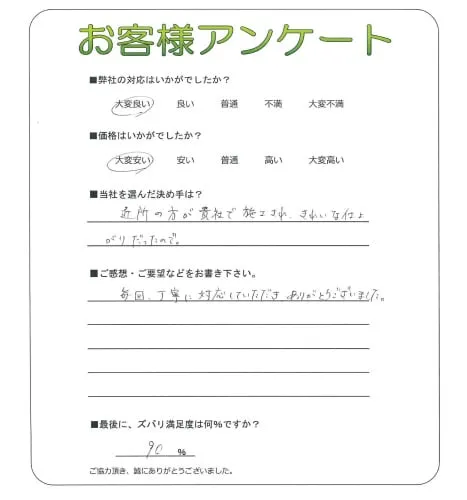 お客様アンケート
■弊社の対応はいかがでしたか？
大変良い 良い 普通 不満 大変不満
■価格はいかがでしたか？
大変安い 安い 普通 高い 大変高い
■当社を選んだ決め手は？
近所の方が貴社で施工され、きれいな仕上
がりだったので。
■ご感想・ご要望などをお書き下さい。
毎回、丁寧に対応していただき、ありがとうございました。
■最後に、ズバリ満足度は何%ですか？
90 %
ご協力頂き、誠にありがとうございました。